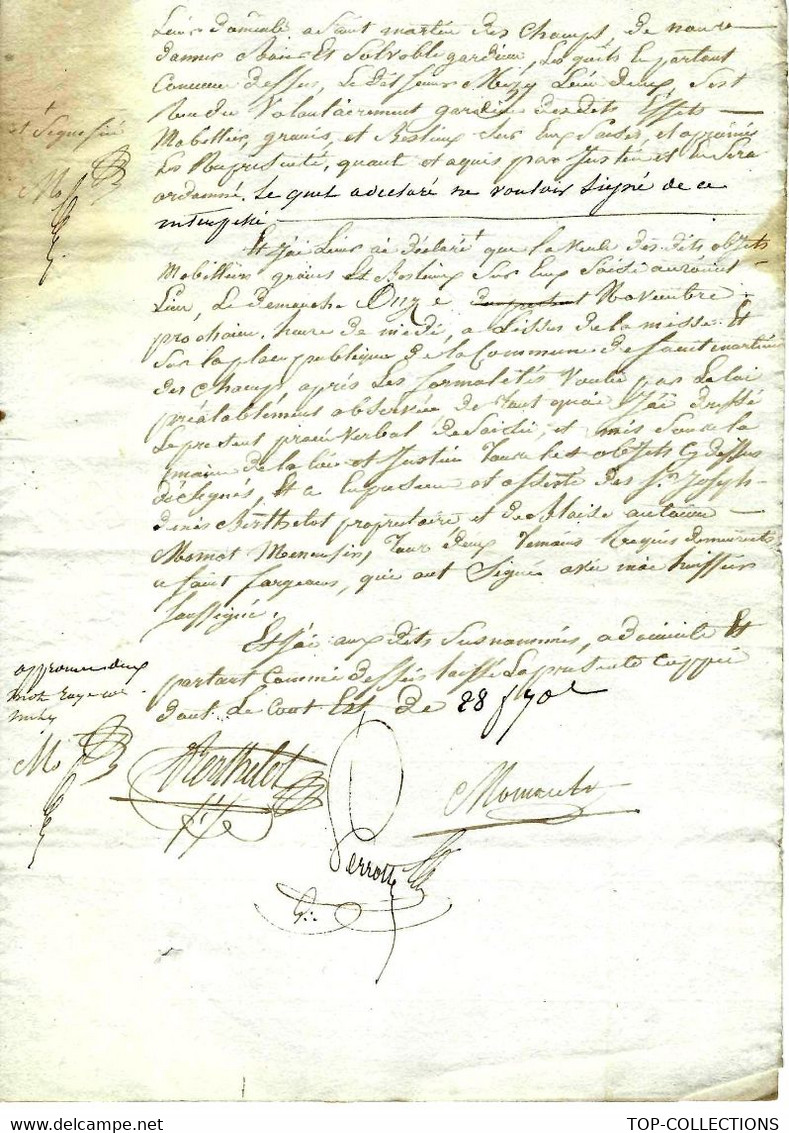 Leur domicile a Saint martin des Champs, de nous
donner Bon Et Solvable gardien, Les quels le parlant
Comme dessus, Le dit sieur Mézy Lun deux, sest
Rendu Volontairement gardien des dits Effets
et Sequestre
Mobilliers, grains, et Bestiaux Sur Eux Saisis, et a promis
Les Representé, quant et aquis par Justice il Sera
ordonné. Le quel a declaré ne vouloir Signé de ce
interpellé
Et Jai Leur ai déclaré que la vente des dits objets
Mobilliers grains Et Bestiaux Sur Eux Saisis auront
Lieu, Le dimanche Onze Novembre
prochain, heure de midi, a Lissue de la messe Et
Sur la place publique de la Commune de Saint martin
des Champs après Les formalités Voulu par La loi
préalablement observée de tout quoi Jai dressé
Le présent procès Verbal de Saisie, et mis Sous la
main de la loi et Justice Tous les objets Cy dessus
désignés, Et a la présence et assisté des Sr. Joseph
denis Berthelot propriétaire et de Blaise antoine
Momot Menuisier, Tous deux Temoins Requis demeurants
a Saint fargeau, qui ont Signé avec moi huissier
Soussigné.
Et Jai aux dits Susnommés, a domicile Et
parlant Comme dessus laissé La présente Coppie
dont Le Cout Est De 28 f 70 c
approuvé deux
mots rayé
nuls
Berthelot
Momot
Perrot
TOP-COLLECTIONS
https://www.delcampe.net